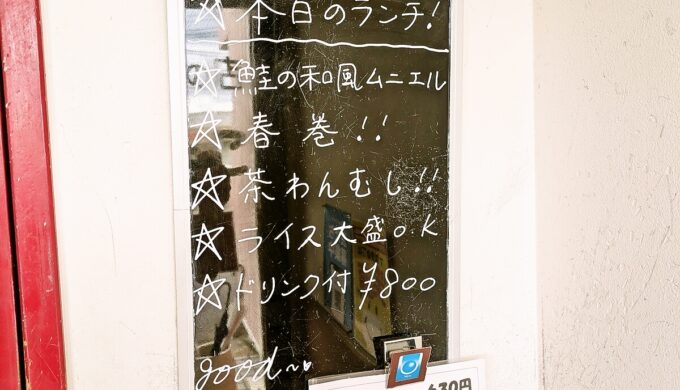 ☆本日のランチ!
☆鮭の和風ムニエル
☆春巻!!
☆茶わんむし!!
☆ライス大盛o.k
☆ドリンク付¥800
good~♥
630円